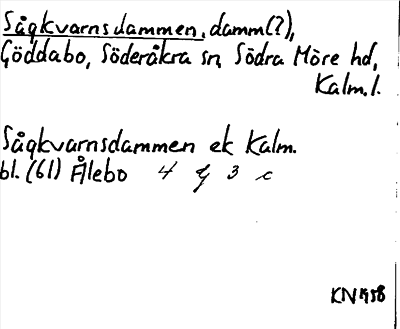 Sågkvarnsdammen, damm(?),
Göddabo, Söderåkra sn, Södra Möre hd,
Kalm. l.
Sågkvarnsdammen ek Kalm.
bl. (61) Ålebo 4 G 3 c
KN 458